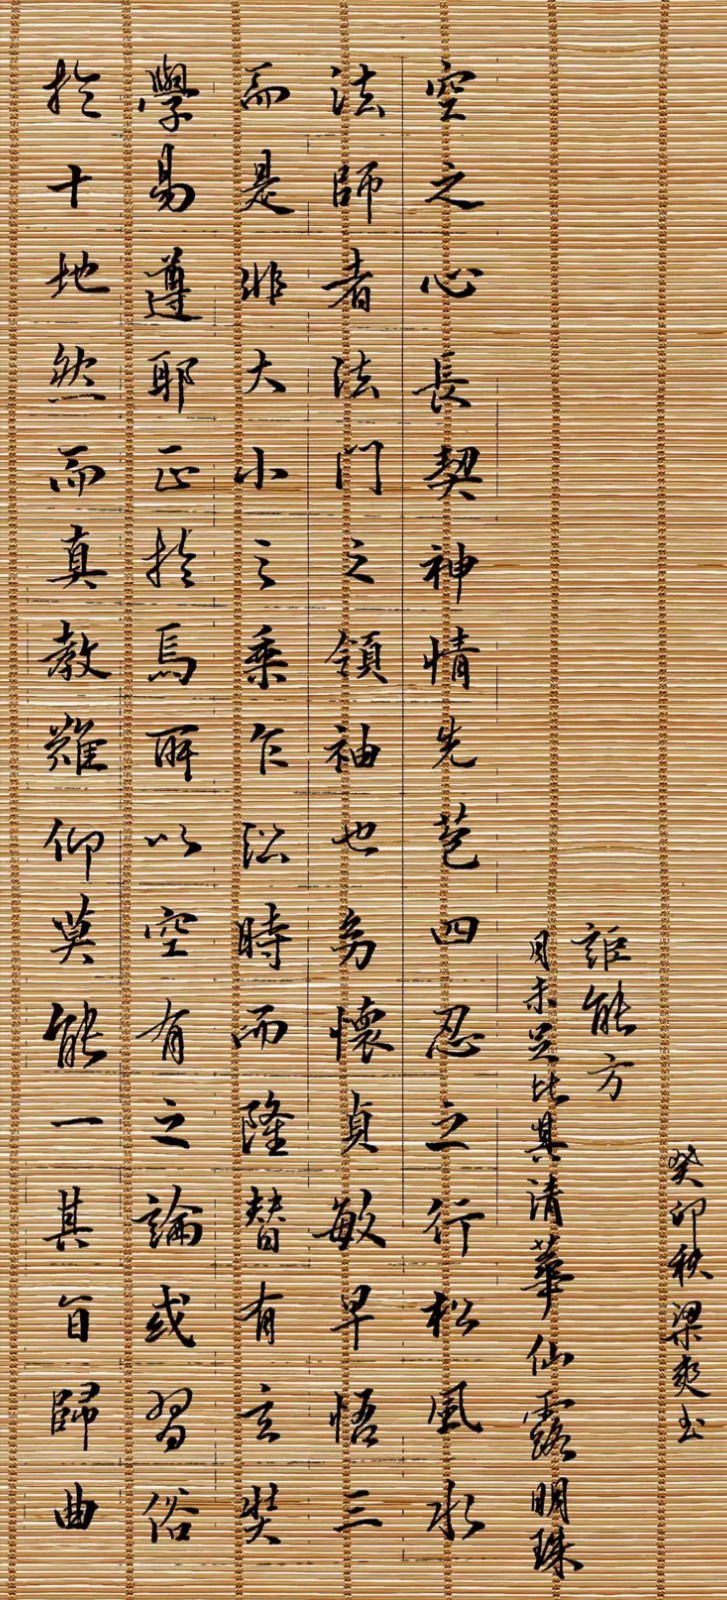 於十地然而真教難仰莫能一其旨歸曲
學易遵耶正於焉所以空有之論或習俗
而是非大小之乘乍沿時而隆替有玄奘
法師者法門之領袖也幼懷貞敏早悟三
空之心長契神情先苞四忍之行松風水
月未足比其清華仙露明珠
詎能方
癸卯秋梁爽书